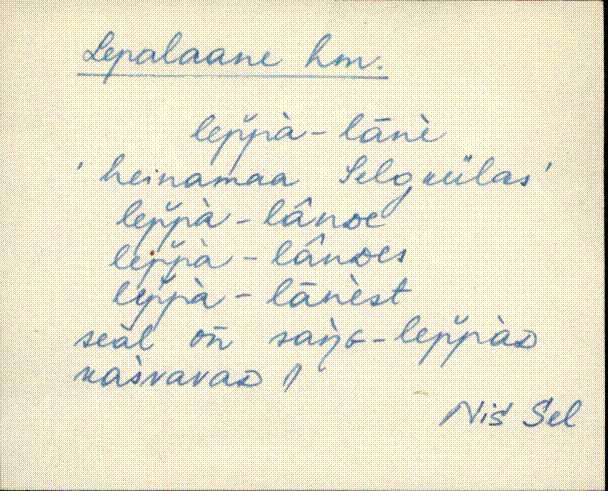 Lepalaane hm.
lep̆pà-lānè
'heinamaa Selgkülas'
lep̆pà-lânᴅe
lep̆pà-lânᴅes
lep̆pà-lānèst
seäl on̄ saŋɢ-lep̆pàᴅ
kàsvavaᴅ
Nis Sel